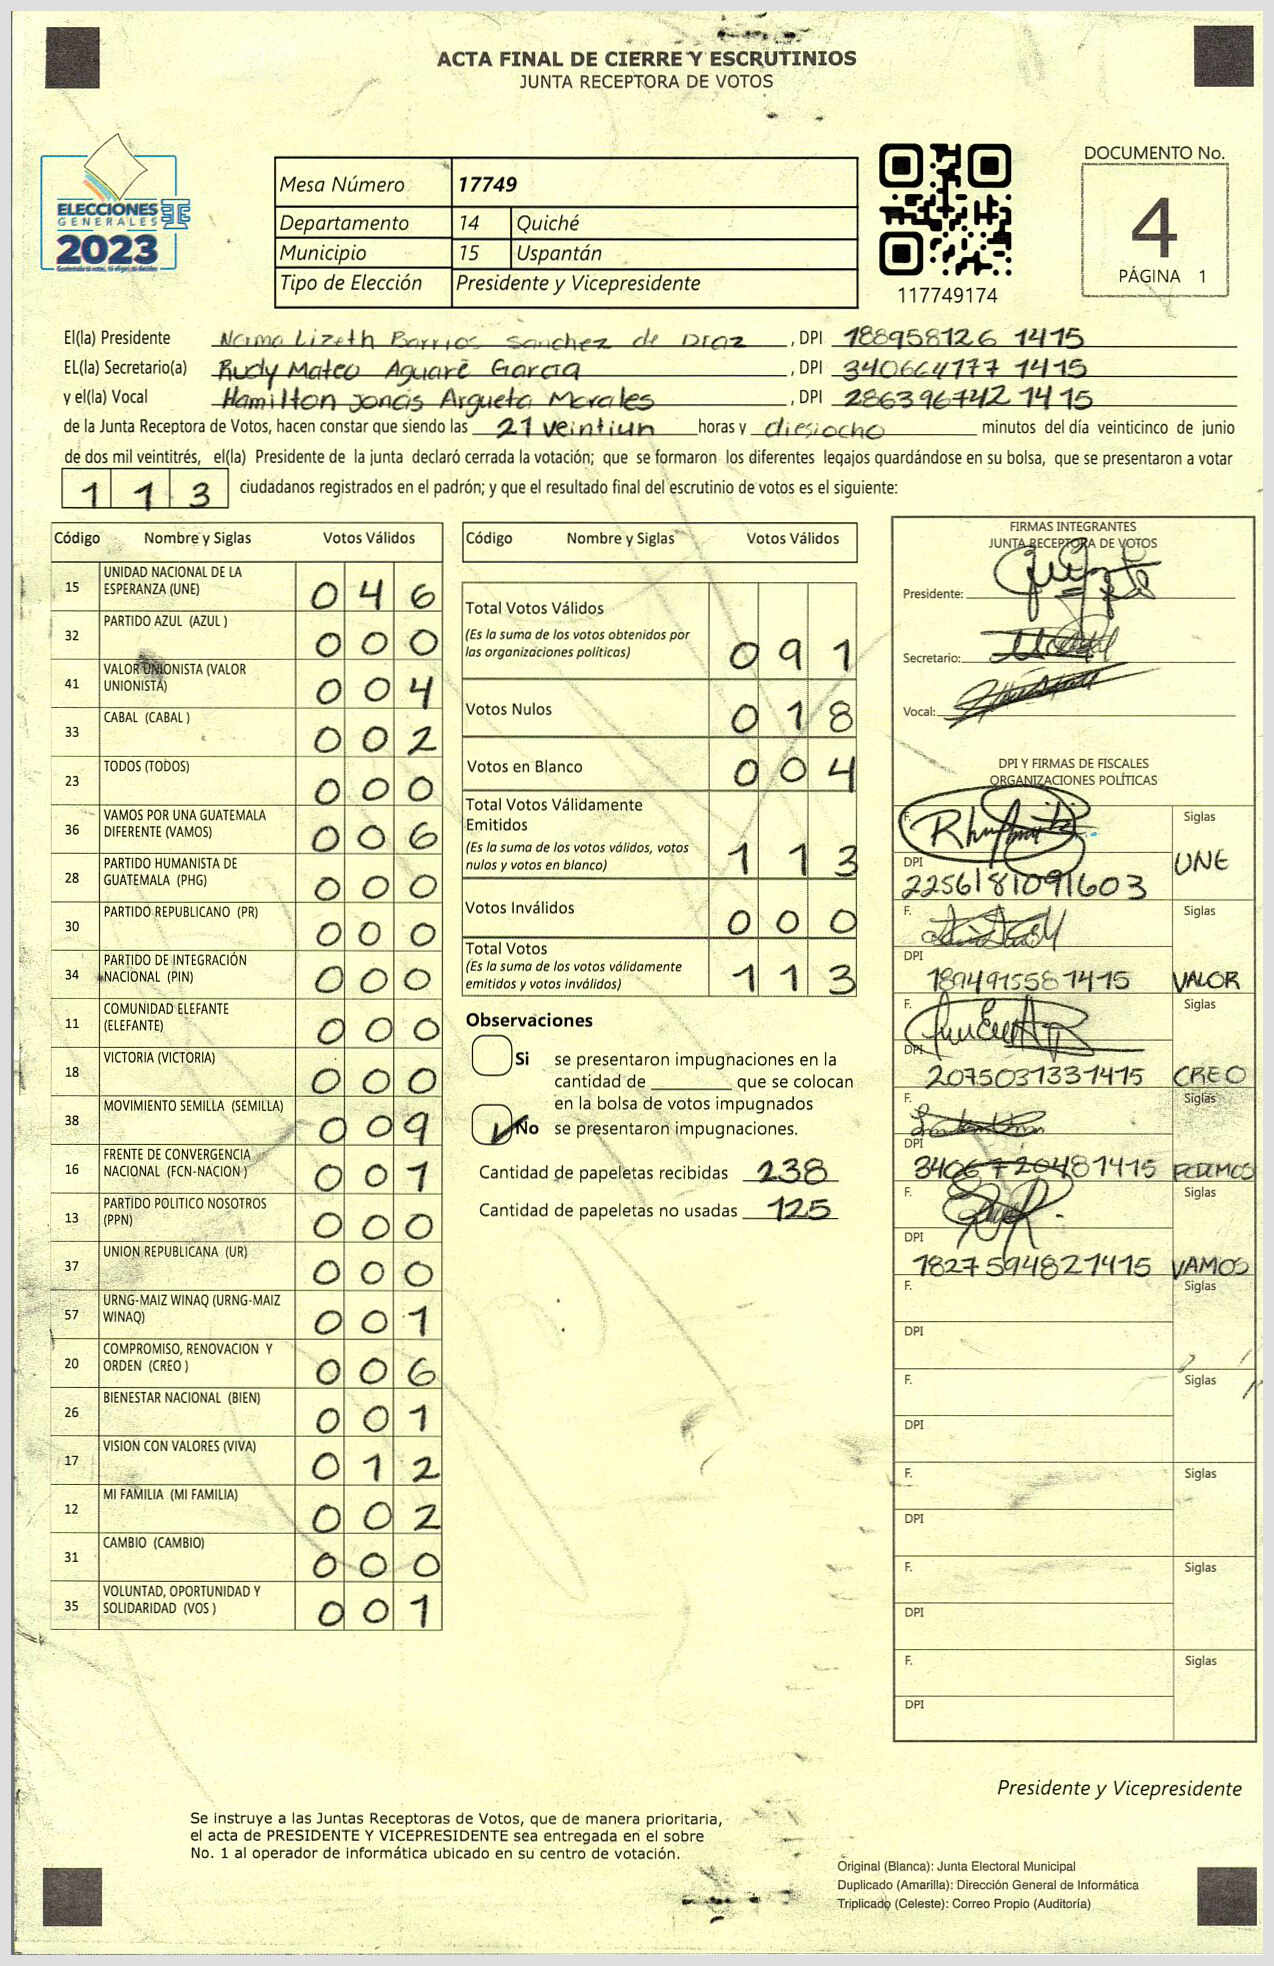 ACTA FINAL DE CIERRE Y ESCRUTINIOS
JUNTA RECEPTORA DE VOTOS
ELECCIONES
GENERALES
2023
Mesa Número 17749
Departamento 14 Quiché
Municipio 15 Uspantán
Tipo de Elección Presidente y Vicepresidente
117749174
DOCUMENTO No.
4
PÁGINA 1
El(la) Presidente Norma Lizeth Barrios Sanchez de Diaz, DPI 188958126 1415
EL(la) Secretario(a) Rudy Mateo Aguaré Garcia, DPI 340664777 1415
y el(la) Vocal Hamilton Jonás Argueta Morales, DPI 286396742 1415
de la Junta Receptora de Votos, hacen constar que siendo las 21 veintiun horas y diesiocho minutos del día veinticinco de junio
de dos mil veintitrés, el(la) Presidente de la junta declaró cerrada la votación; que se formaron los diferentes legajos quardándose en su bolsa, que se presentaron a votar
113 ciudadanos registrados en el padrón; y que el resultado final del escrutinio de votos es el siguiente:
Código Nombre y Siglas Votos Válidos
15 UNIDAD NACIONAL DE LA ESPERANZA (UNE) 046
32 PARTIDO AZUL (AZUL ) 000
41 VALOR UNIONISTA (VALOR UNIONISTA) 004
33 CABAL (CABAL ) 002
23 TODOS (TODOS) 000
36 VAMOS POR UNA GUATEMALA DIFERENTE (VAMOS) 006
28 PARTIDO HUMANISTA DE GUATEMALA (PHG) 000
30 PARTIDO REPUBLICANO (PR) 000
34 PARTIDO DE INTEGRACIÓN NACIONAL (PIN) 000
11 COMUNIDAD ELEFANTE (ELEFANTE) 000
18 VICTORIA (VICTORIA) 000
38 MOVIMIENTO SEMILLA (SEMILLA) 009
16 FRENTE DE CONVERGENCIA NACIONAL (FCN-NACION ) 001
13 PARTIDO POLITICO NOSOTROS (PPN) 000
37 UNION REPUBLICANA (UR) 000
57 URNG-MAIZ WINAQ (URNG-MAIZ WINAQ) 001
20 COMPROMISO, RENOVACION Y ORDEN (CREO ) 006
26 BIENESTAR NACIONAL (BIEN) 001
17 VISION CON VALORES (VIVA) 012
12 MI FAMILIA (MI FAMILIA) 002
31 CAMBIO (CAMBIO) 000
35 VOLUNTAD, OPORTUNIDAD Y SOLIDARIDAD (VOS ) 001
Código Nombre y Siglas Votos Válidos
Total Votos Válidos
(Es la suma de los votos obtenidos por
las organizaciones políticas) 091
Votos Nulos 018
Votos en Blanco 004
Total Votos Válidamente
Emitidos
(Es la suma de los votos válidos, votos
nulos y votos en blanco) 113
Votos Inválidos 000
Total Votos
(Es la suma de los votos válidamente
emitidos y votos inválidos) 113
Observaciones
Si se presentaron impugnaciones en la
cantidad de ________ que se colocan
en la bolsa de votos impugnados
No se presentaron impugnaciones.
Cantidad de papeletas recibidas 238
Cantidad de papeletas no usadas 125
FIRMAS INTEGRANTES
JUNTA RECEPTORA DE VOTOS
Presidente:
Secretario:
Vocal:
DPI Y FIRMAS DE FISCALES
ORGANIZACIONES POLÍTICAS
F. Siglas
DPI UNE
2256181091603
F. Siglas
DPI
1894915581415 VALOR
F. Siglas
DPI
2075031331415 CREO
F. Siglas
DPI
3406720481415 PODEMOS
F. Siglas
DPI
1827594821415 VAMOS
F. Siglas
DPI
F. Siglas
DPI
F. Siglas
DPI
F. Siglas
DPI
F. Siglas
DPI
Presidente y Vicepresidente
Se instruye a las Juntas Receptoras de Votos, que de manera prioritaria,
el acta de PRESIDENTE Y VICEPRESIDENTE sea entregada en el sobre
No. 1 al operador de informática ubicado en su centro de votación.
Original (Blanca): Junta Electoral Municipal
Duplicado (Amarilla): Dirección General de Informática
Triplicado (Celeste): Correo Propio (Auditoría)